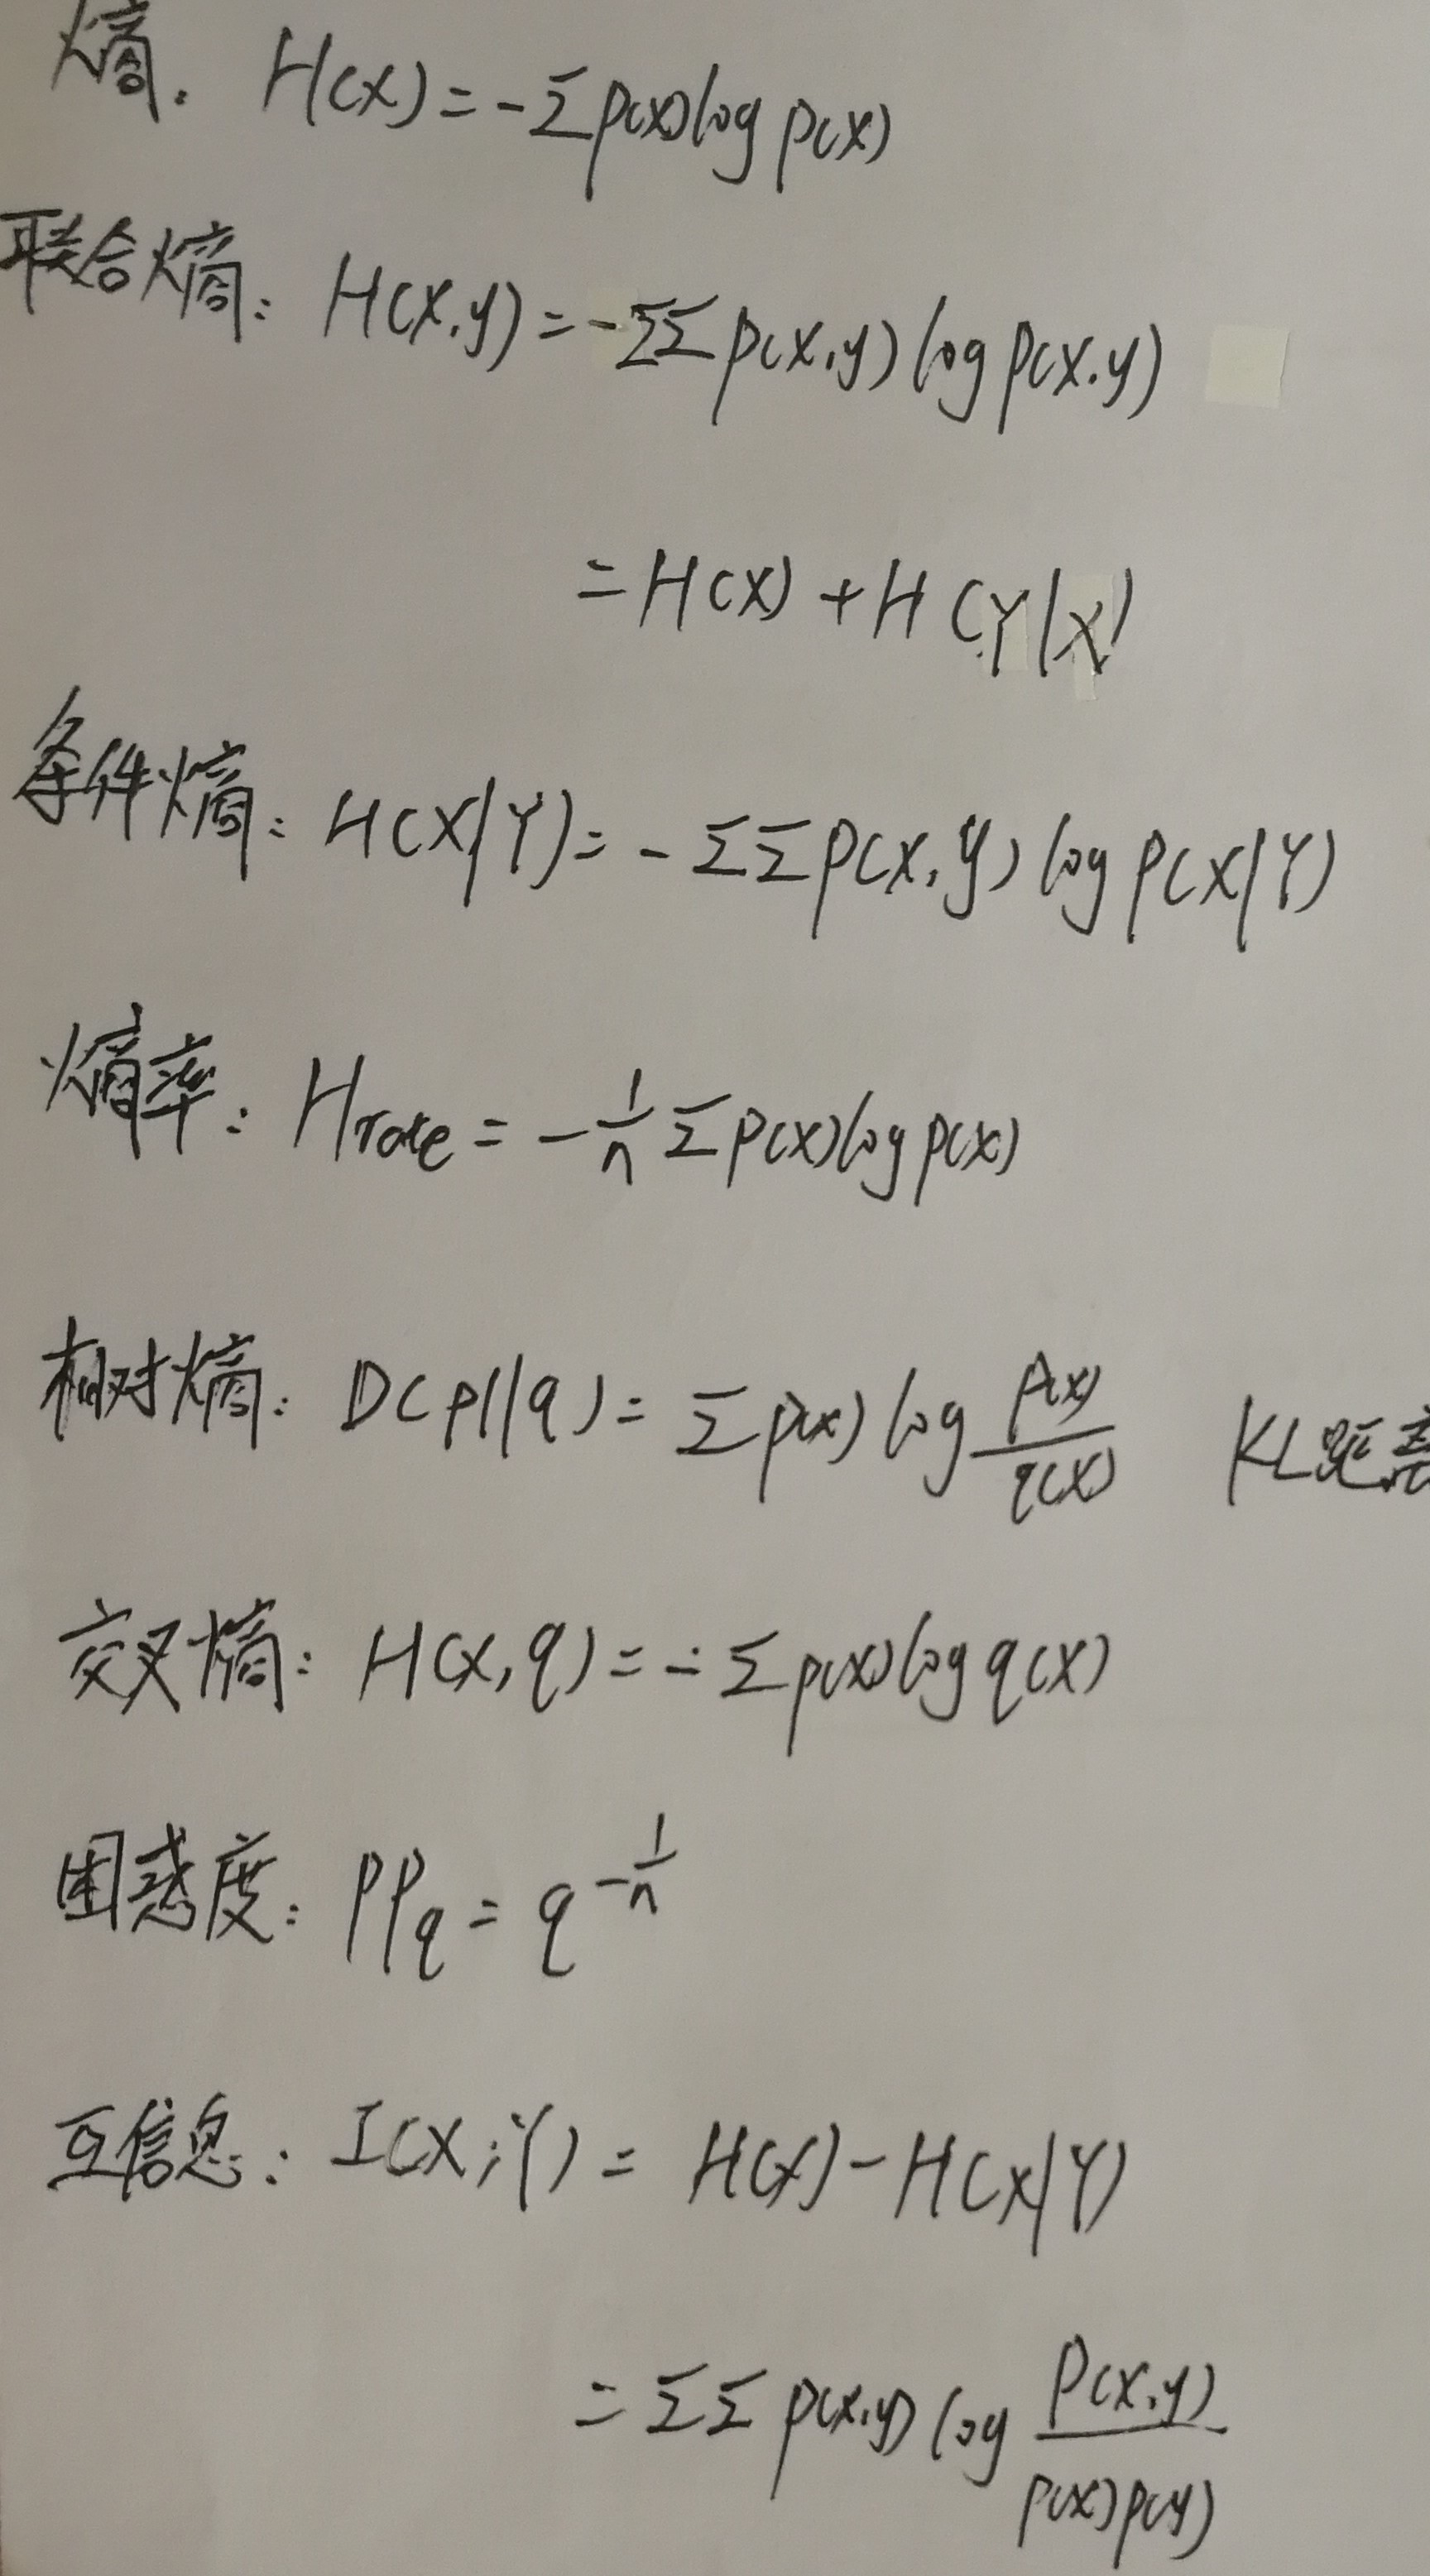 熵: H(X) = -Σ p(x) log p(x)
联合熵: H(X,y) = -ΣΣ p(x,y) log p(x,y)
= H(X) + H(Y|X)
条件熵: H(X|Y) = -ΣΣ p(x,y) log p(X|Y)
熵率: Hrate = -1/n Σ p(x) log p(x)
相对熵: D(p||q) = Σ p(x) log p(x)/q(x) KL距离
交叉熵: H(x,q) = -Σ p(x) log q(x)
困惑度: PPq = q^(-1/n)
互信息: I(X;Y) = H(X) - H(X|Y)
= ΣΣ p(x,y) log p(x,y)/p(x)p(y)